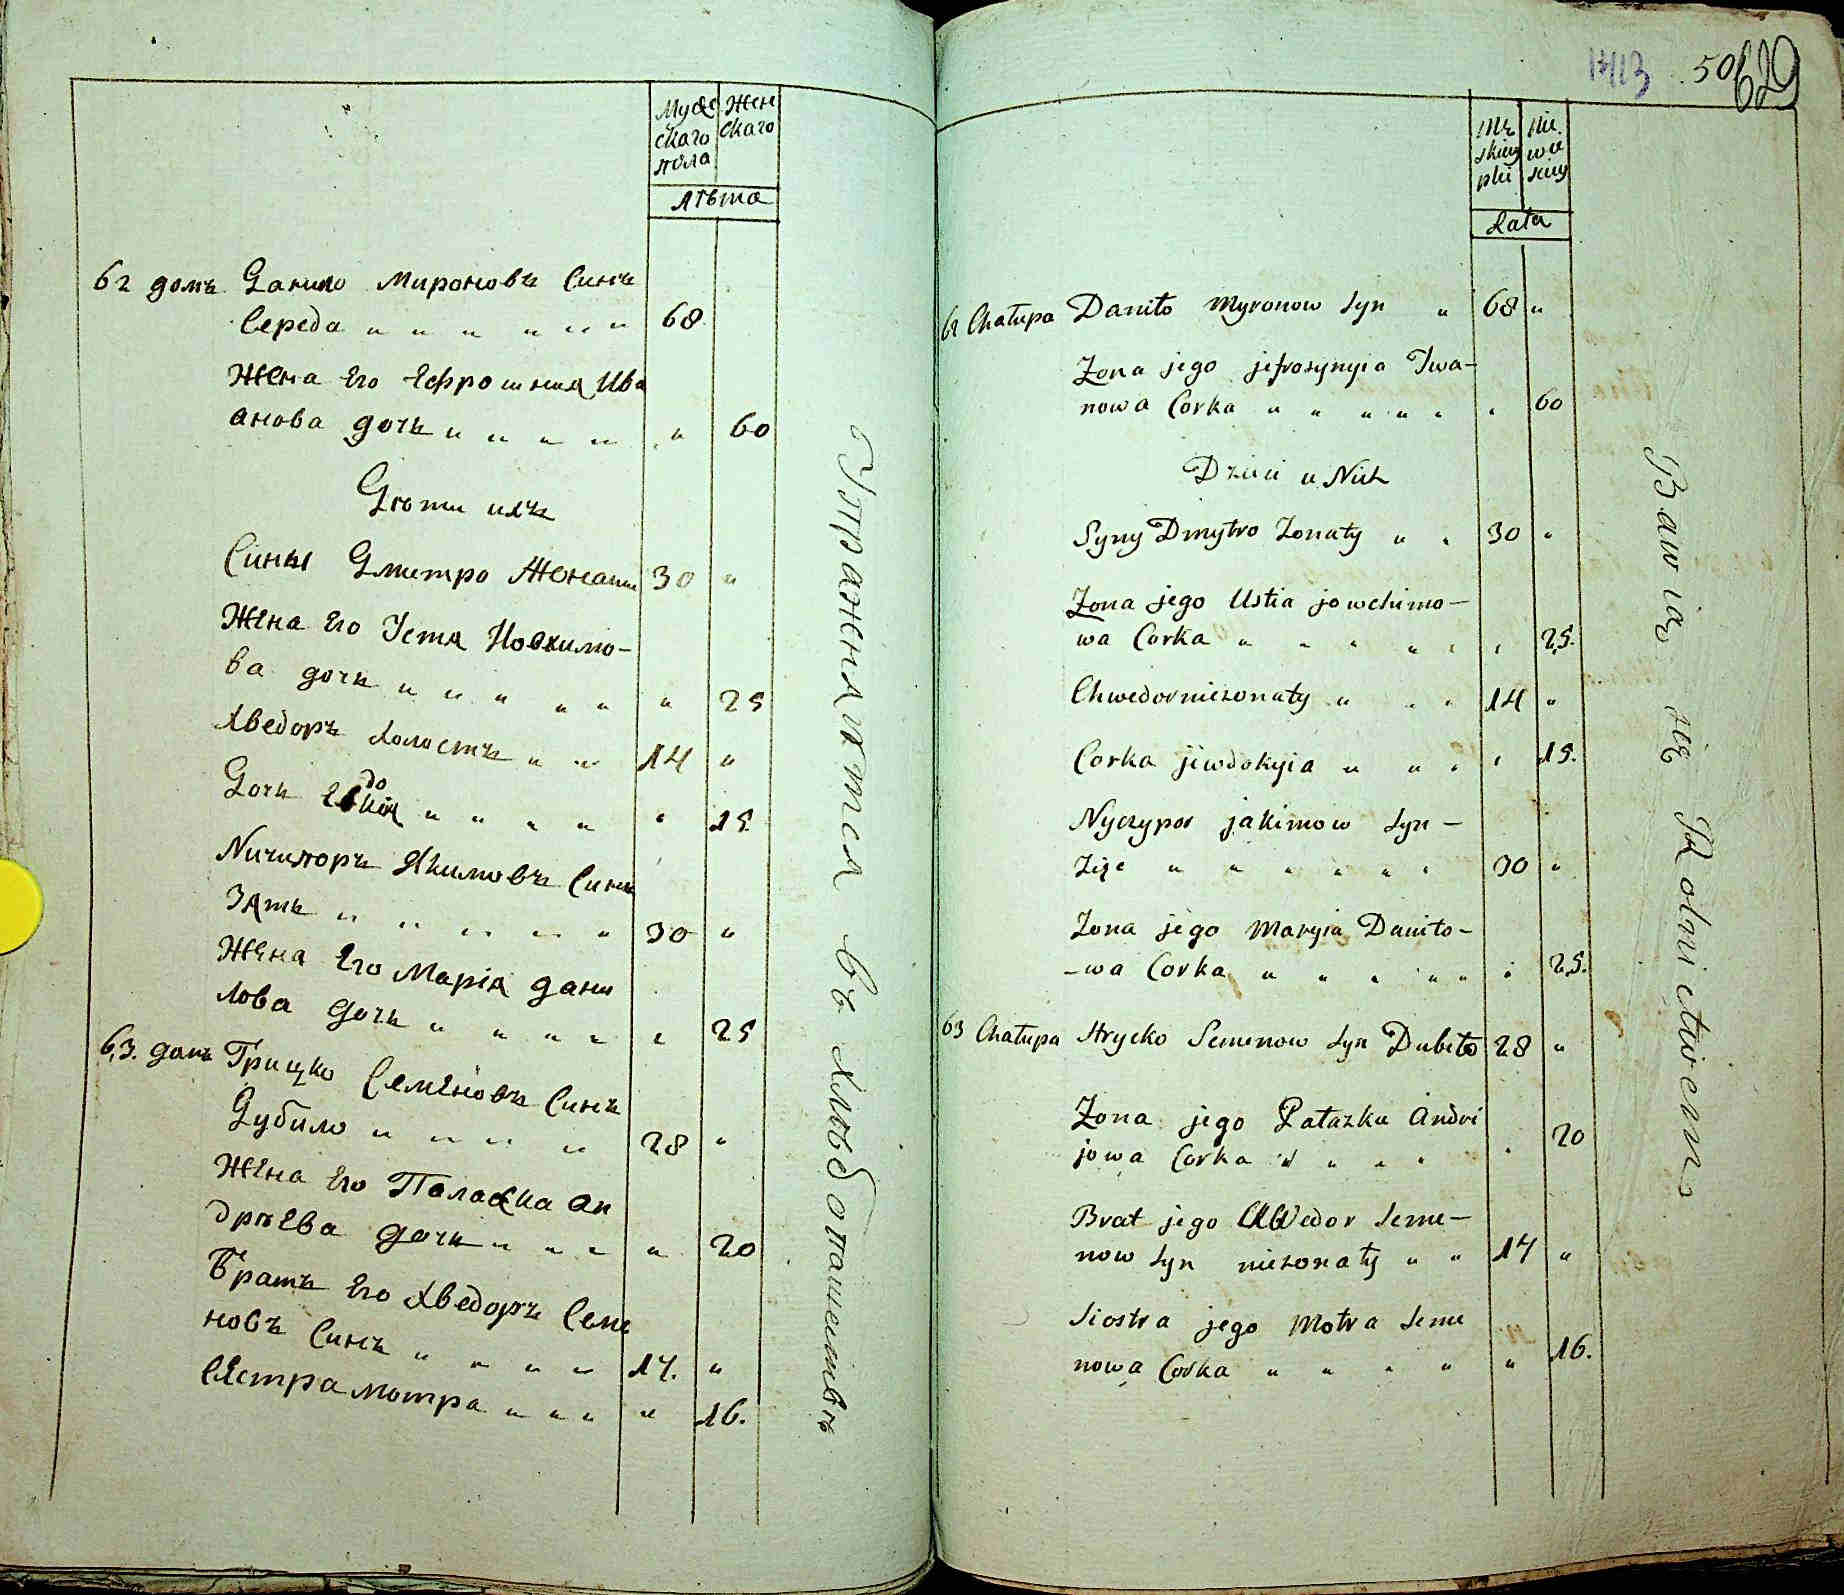 Мужескаго пола
Женскаго
лѣта
62 домъ Данило Мироновъ Синъ
Середа " " " " " " 68
Жена Его Ефросиния Ива
анова дочь " " " " " 60
Дѣти ихъ
Сины Дмитро Женати 30 "
Жена Его Устя Иовхимо-
ва дочь " " " " " " 25
Хведоръ холостъ " " 14 "
Дочь Евдокія " " " " " 15
Ничипоръ Якимовъ Синъ
Зять " " " " " 30 "
Жена Его Марія Дани
лова дочь " " " " " 25
63. домъ Грицко Семеновъ Синъ
Дубило " " " " 28 "
Жена Его Палажка Ан
дрѣева дочь " " " " 20
Братъ Его Хведоръ Семе
новъ Синъ " " " " 14. "
Сестра Мотра " " " " 16.
Упражняются въ хлѣбопашествѣ
13/13 50 629
Mę skiey płci
Nie wie sciey
Lata
62 Chałupa Daniło Myronow Syn " 68 "
Zona jego jefrosynyia Iwa-
nowa Corka " " " " " " 60
Dzieci u Nich
Syny Dmytro Zonaty " " 30 "
Zona jego Ustia jowchimo-
wa Corka " " " " " " 25.
Chwedor niezonaty " " " 14 "
Corka jiwdokyia " " " " 15.
Nyczypor jakimow Syn -
Zięc " " " " " " 30 "
Zona jego Maryia Daniło-
-wa Corka " " " " " " 25.
63 Chałupa Hrycko Semenow Syn Dubiło 28 "
Zona jego Pałazka Andri
jowa Corka " " " " " 20
Brat jego Chwedor Seme-
now Syn niezonaty " " 14 "
Siostra jego Motra Seme
nowa Corka " " " " " 16.
Bawią się Rolnictwem